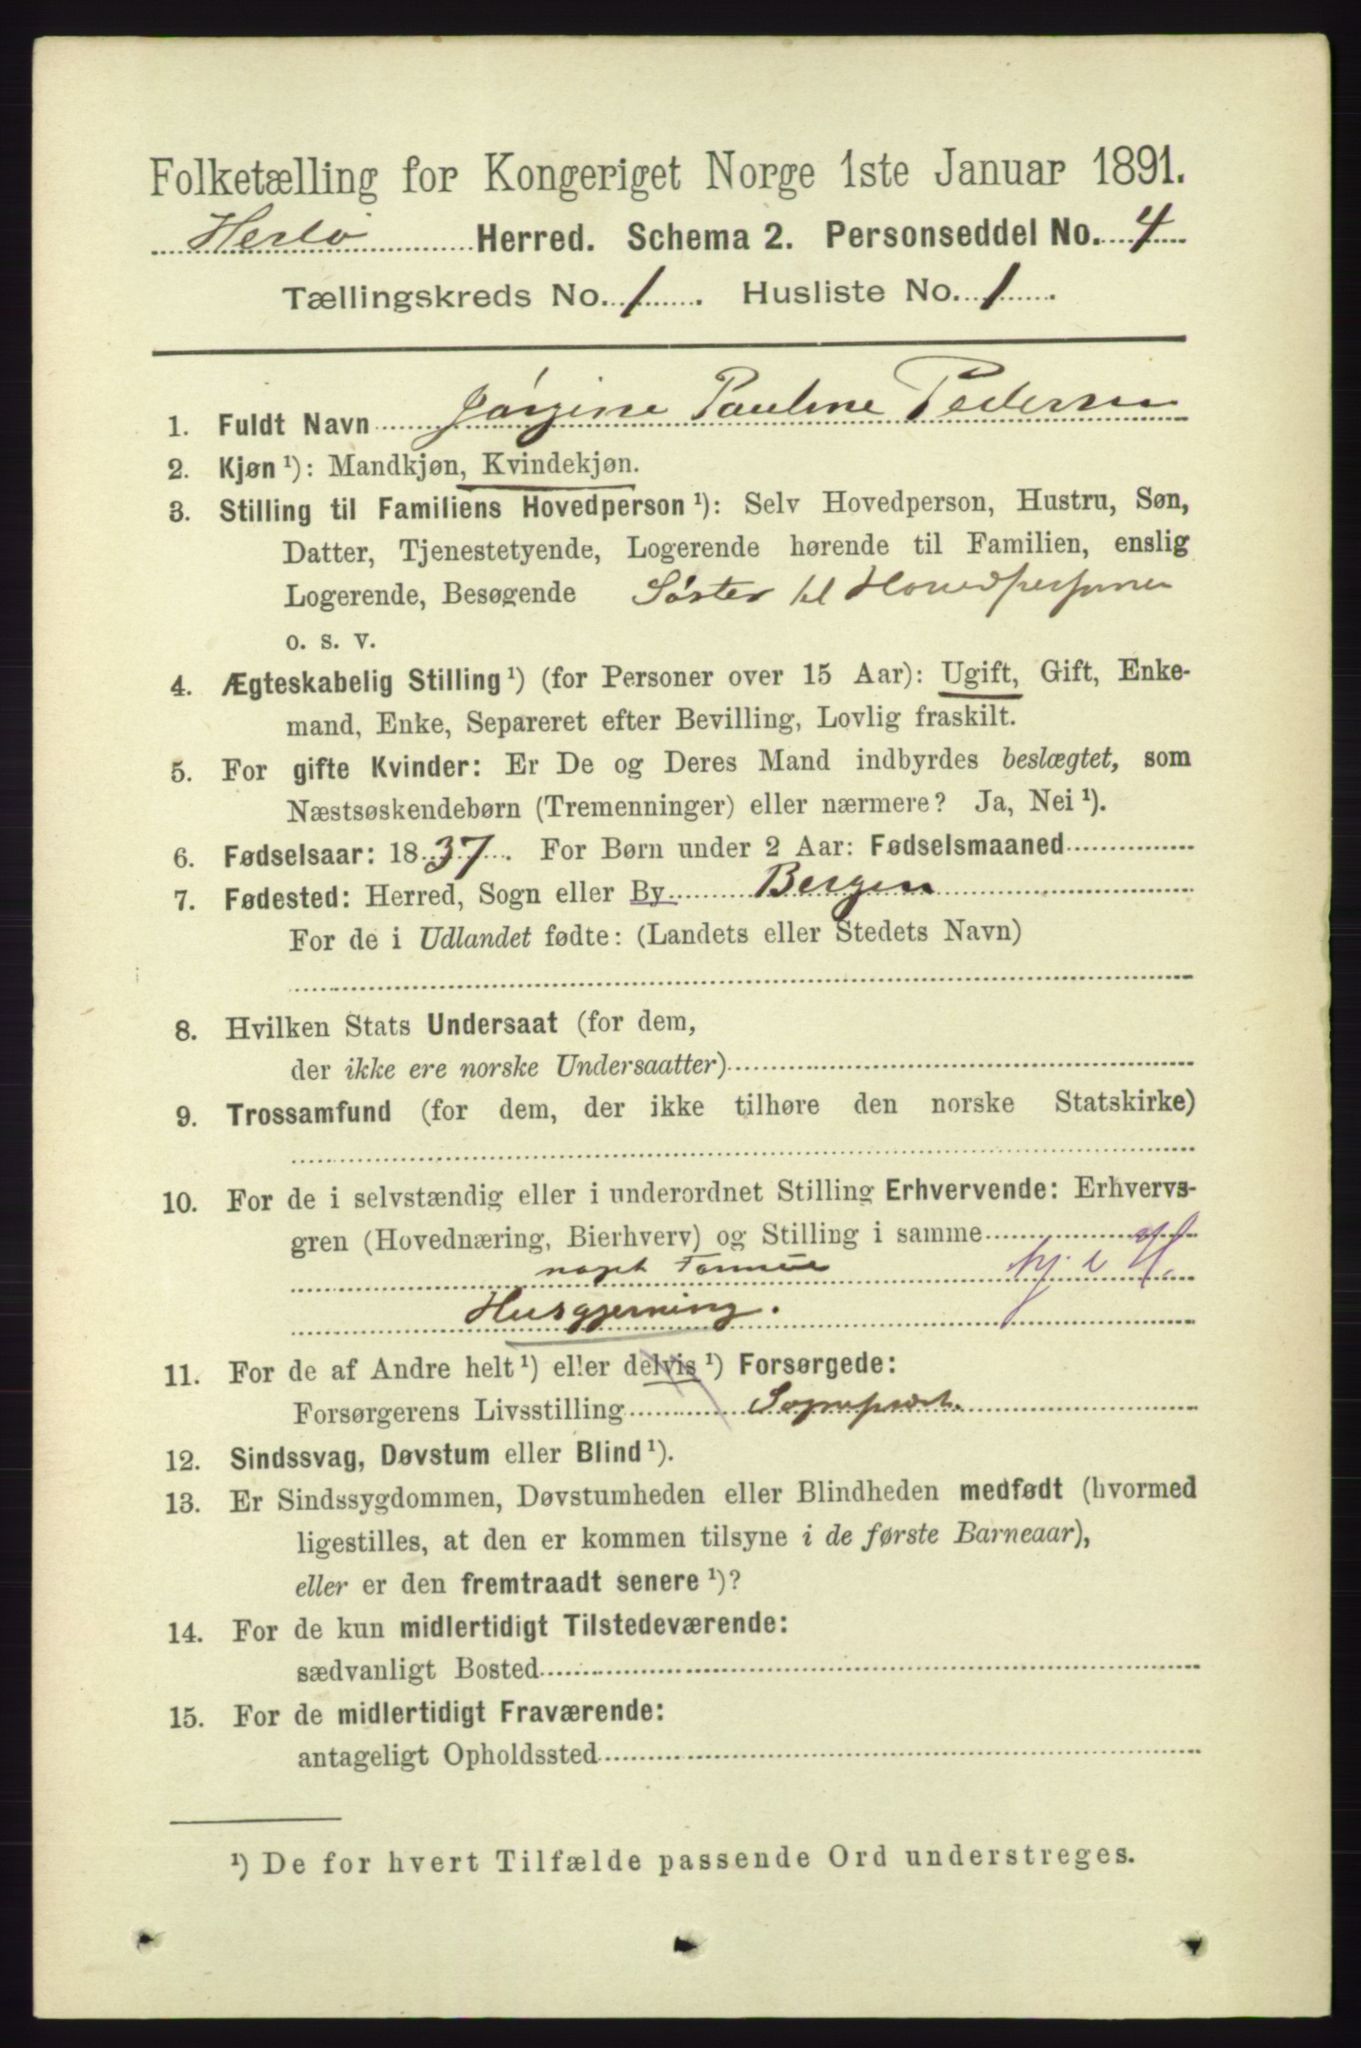 Folketælling for Kongeriget Norge 1ste Januar 1891.
Herlø Herred. Schema 2. Personseddel No. 4
Tællingskreds No. 1. Husliste No. 1.
1. Fuldt Navn Jørgine Pauline Pedersen
2. Kjøn ¹): Mandkjøn, Kvindekjøn.
3. Stilling til Familiens Hovedperson ¹): Selv Hovedperson, Hustru, Søn,
Datter, Tjenestetyende, Logerende hørende til Familien, enslig
Logerende, Besøgende Søster til Hovedpersonen
o. s. v.
4. Ægteskabelig Stilling ¹) (for Personer over 15 Aar): Ugift, Gift, Enke-
mand, Enke, Separeret efter Bevilling, Lovlig fraskilt.
5. For gifte Kvinder: Er De og Deres Mand indbyrdes beslægtet, som
Næstsøskendebørn (Tremenninger) eller nærmere? Ja, Nei ¹).
6. Fødselsaar: 1837. For Børn under 2 Aar: Fødselsmaaned
7. Fødested: Herred, Sogn eller By Bergen
For de i Udlandet fødte: (Landets eller Stedets Navn)
8. Hvilken Stats Undersaat (for dem,
der ikke ere norske Undersaatter)
9. Trossamfund (for dem, der ikke tilhøre den norske Statskirke)
10. For de i selvstændig eller i underordnet Stilling Erhvervende: Erhvervs-
gren (Hovednæring, Bierhverv) og Stilling i samme
noget Formue
Husgjerning.
11. For de af Andre helt ¹) eller delvis ¹) Forsørgede:
Forsørgerens Livsstilling Sognepræst.
12. Sindssvag, Døvstum eller Blind ¹).
13. Er Sindssygdommen, Døvstumheden eller Blindheden medfødt (hvormed
ligestilles, at den er kommen tilsyne i de første Barneaar),
eller er den fremtraadt senere ¹)?
14. For de kun midlertidigt Tilstedeværende:
sædvanligt Bosted
15. For de midlertidigt Fraværende:
antageligt Opholdssted
¹) De for hvert Tilfælde passende Ord understreges.